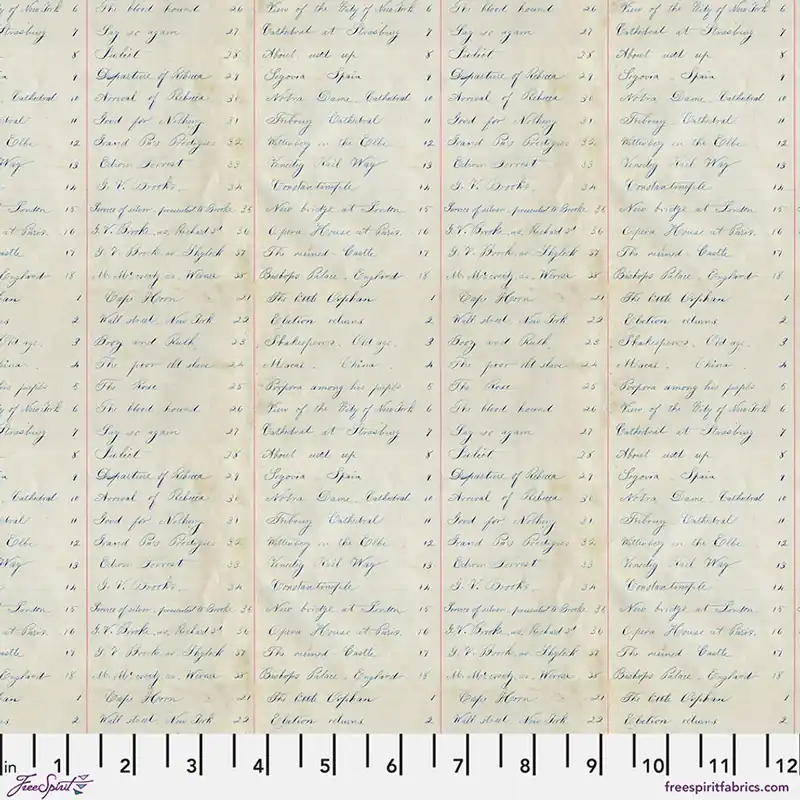 y of New York 6 The blood hound 26 View of the City of New York 6 The blood hound 26 View of the City of New York 6
Strassburg 7 Say so again 27 Cathedral at Strassburg 7 Say so again 27 Cathedral at Strassburg 7
8 Juliet 28 About used up 8 Juliet 28 About used up 8
9 Departure of Rebecca 29 Segovia Spain 9 Departure of Rebecca 29 Segovia Spain 9
Cathedral 10 Arrival of Rebecca 30 Notra Dame Cathedral 10 Arrival of Rebecca 30 Notra Dame Cathedral 10
11 Good for Nothing 31 Fribourg Cathedral 11 Good for Nothing 31 Fribourg Cathedral 11
Elbe 12 Grand Pa's Prodigies 32 Wittenberg on the Elbe 12 Grand Pa's Prodigies 32 Wittenberg on the Elbe 12
Way 13 Edwin Forrest 33 Venedig Rail Way 13 Edwin Forrest 33 Venedig Rail Way 13
14 G. V. Brooke. 34 Constantinople 14 G. V. Brooke. 34 Constantinople 14
at London 15 Service of silver, presented to Brooke 35 New bridge at London 15 Service of silver, presented to Brooke 35 New bridge at London 15
at Paris. 16 G. V. Brooke, as, Richard 3d 36 Opera House at Paris. 16 G. V. Brooke, as, Richard 3d 36 Opera House at Paris. 16
Castle 17 G. V. Brooke as Shylock 37 The ruined Castle 17 G. V. Brooke as Shylock 37 The ruined Castle 17
England 18 Mr. as Werner 38 Bishops Palace. England 18 Mr. as Werner 38 Bishops Palace. England 18
1 Cape Horn 21 The little Orphan 1 Cape Horn 21 The little Orphan 1
2 Wall street. New York 22 Election returns 2 Wall street. New York 22 Election returns 2
Old age. 3 Boaz and Ruth 23 Shakespeare's. Old age. 3 Boaz and Ruth 23 Shakespeare's. Old age. 3
China. 4 The poor old slave 24 Macai. China. 4 The poor old slave 24 Macai. China. 4
his pupils 5 The Rose 25 Porpora among his pupils 5 The Rose 25 Porpora among his pupils 5
y of New York 6 The blood hound 26 View of the City of New York 6 The blood hound 26 View of the City of New York 6
Strassburg 7 Say so again 27 Cathedral at Strassburg 7 Say so again 27 Cathedral at Strassburg 7
8 Juliet 28 About used up 8 Juliet 28 About used up 8
9 Departure of Rebecca 29 Segovia Spain 9 Departure of Rebecca 29 Segovia Spain 9
Cathedral 10 Arrival of Rebecca 30 Notra Dame Cathedral 10 Arrival of Rebecca 30 Notra Dame Cathedral 10
11 Good for Nothing 31 Fribourg Cathedral 11 Good for Nothing 31 Fribourg Cathedral 11
Elbe 12 Grand Pa's Prodigies 32 Wittenberg on the Elbe 12 Grand Pa's Prodigies 32 Wittenberg on the Elbe 12
Way 13 Edwin Forrest 33 Venedig Rail Way 13 Edwin Forrest 33 Venedig Rail Way 13
14 G. V. Brooke. 34 Constantinople 14 G. V. Brooke. 34 Constantinople 14
at London 15 Service of silver, presented to Brooke 35 New bridge at London 15 Service of silver, presented to Brooke 35 New bridge at London 15
at Paris. 16 G. V. Brooke, as, Richard 3d 36 Opera House at Paris. 16 G. V. Brooke, as, Richard 3d 36 Opera House at Paris. 16
Castle 17 G. V. Brooke as Shylock 37 The ruined Castle 17 G. V. Brooke as Shylock 37 The ruined Castle 17
England 18 Mr. as Werner 38 Bishops Palace. England 18 Mr. as Werner 38 Bishops Palace. England 18
1 Cape Horn 21 The little Orphan 1 Cape Horn 21 The little Orphan 1
2 Wall street. New York 22 Election returns 2 Wall street. New York 22 Election returns 2
in 1 2 3 4 5 6 7 8 9 10 11 12
FreeSpirit
freespiritfabrics.com